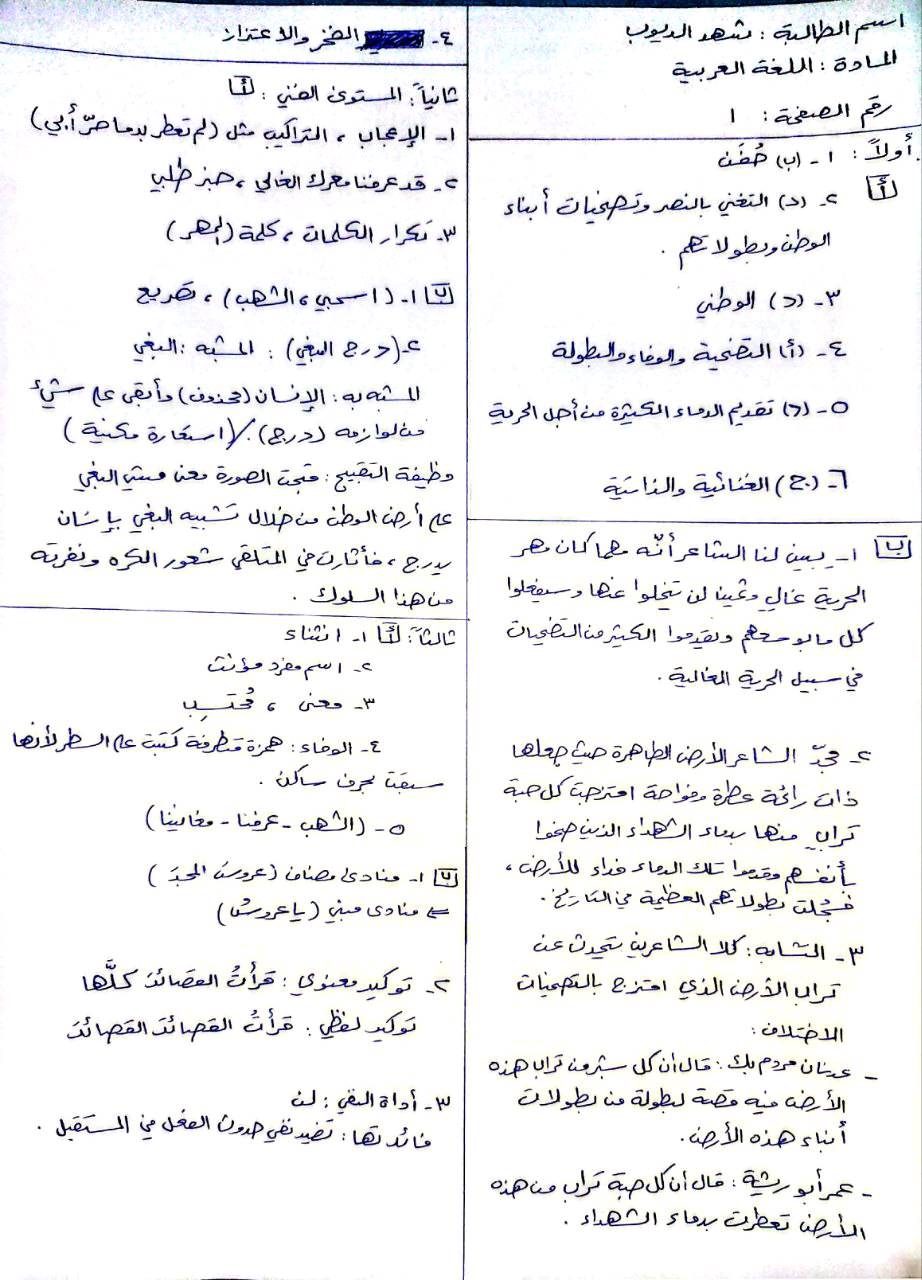 اسم الطالبة : شهد الديوب
المادة : اللغة العربية
رقم الصفحة : ١
أولاً : ١ - (ب) حُفَن
أ ٢ - (د) التغني بالنصر وتضحيات أبناء
الوطن وبطولاتهم .
٣ - (د) الوطني
٤ - (أ) التضحية والوفاء والبطولة
٥ - (د) تقديم الدماء الكثيرة من أجل الحرية
٦ - (ج) الغنائية والذاتية
ب ١ - يبين لنا الشاعر أنّه مهما كان مهر
الحرية غالي وثمينا لن يتخلوا عنها وسيفعلوا
كل ما بوسعهم ويقدموا الكثير من التضحيات
في سبيل الحرية الغالية .
٢ - مجّد الشاعر الأرض الطاهرة حيث جعلها
ذات رائحة عطرة وفواحة امتزجت كل حبة
تراب منها بدماء الشهداء الذين ضحوا
بأنفسهم وقدموا تلك الدماء فداء للأرض ،
فسُجلت بطولاتهم العظيمة في التاريخ .
٣ - التشابه : كلا الشاعرين تحدث عن
تراب الأرض الذي امتزج بالتضحيات
الاختلاف :
- عدنان مردم بك : قال أن كل شبر من تراب هذه
الأرض فيه قصة لبطولة من بطولات
أبناء هذه الأرض .
- عمر أبو ريشة : قال أن كل حبة تراب من هذه
الأرض تعطرت بدماء الشهداء .
٤ - الفخر والاعتزاز
ثانياً : المستوى الفني : أ
١ - الإعجاب ، التراكيب مثل (لم تعطر بدما حرّ أبي)
٢ - قد عرفنا مهرك الغالي ، خبر طلبي
٣ - تكرار الكلمات ، كلمة (المهر)
ب ١ - (اسحبي ، الشهب) ، تصريع
٢ - (درج البغي) : المشبه : البغي
المشبه به : الإنسان (محذوف) وأبقى على شيء
من لوازمه (درج) . (استعارة مكنية)
وظيفة التقبيح : قبحت الصورة معنى مشي البغي
على أرض الوطن من خلال تشبيه البغي بإنسان
يدرج ، فأثارت في المتلقي شعور الكره ونفرته
من هذا السلوك .
ثالثاً : أ ١ - انثناء
٢ - اسم مفرد مؤنث
٣ - معنى ، مُحتَسِب
٤ - الوفاء : همزة متطرفة كتبت على السطر لأنها
سبقت بحرف ساكن .
٥ - (الشهب - عرفنا - مغانينا)
ب ١ - منادى مضاف (عروسَ المجدِ)
⇐ منادى مبني (يا عروسُ)
٢ - توكيد معنوي : قرأتُ القصائدَ كلَّها
توكيد لفظي : قرأتُ القصائدَ القصائدَ
٣ - أداة النفي : لن
فائدتها : تفيد نفي حدوث الفعل في المستقبل .